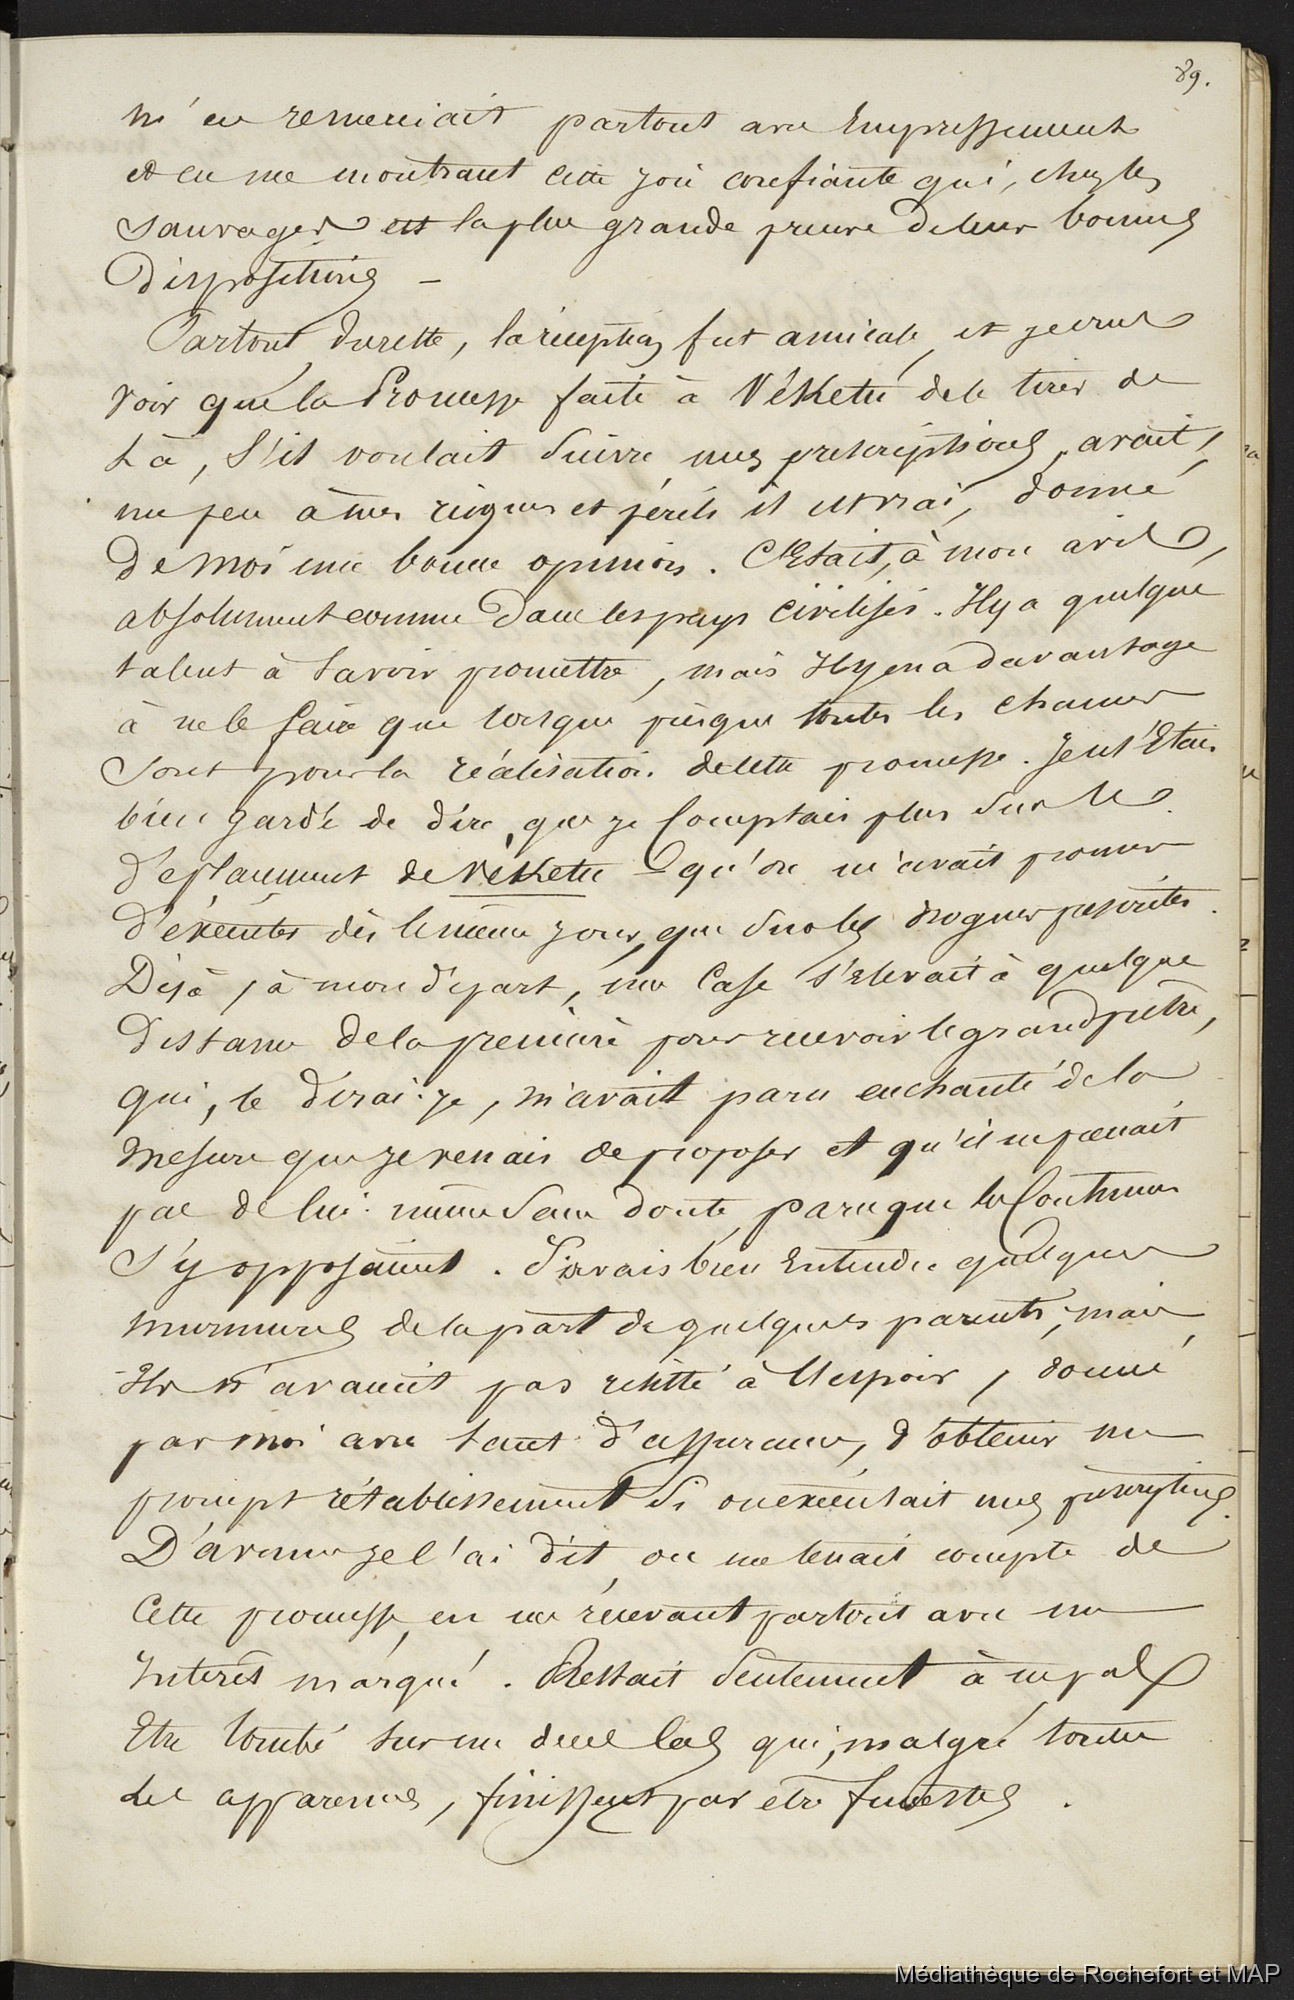 89.
m'en remerciait partout avec Empressement
et en me montrant cette joie confiante qui, chez les
Sauvages est la plus grande preuve de leur bonnes
Dispositions —
Partout du reste, la réception fut amicale, et je crus
voir que la Promesse faite à Véketu de le tirer de
Là, S'il voulait Suivre mes prescriptions, avait,
un peu à mes risques et périls il est vrai, donné
De moi une bonne opinion. C'Etait, à mon avis,
absolument comme Dans les pays Civilisés. Il y a quelque
talent à Savoir promettre, mais Il y en a Davantage
à ne le faire que lorsque presque toutes les chances
Sont pour la réalisation de cette promesse. Je m'Etais
bien gardé de dire, que je Comptais plus Sur le
Déplacement de Véketu qu'on m'avait promis
D'éxécuter dès le même jour, que Sur les drogues prescrites.
Déjà, à mon départ, une Case s'Elevait à quelque
Distance De la première pour recevoir le grand prêtre,
qui, le dirai-je, m'avait paru enchanté de la
Mesure que je venais de proposer et qu'il ne prenait
pas de lui-même Sans doute, parce que les Coutumes
S'y opposaient. J'avais bien Entendu quelques
murmures de la part de quelques parents, mais
Ils n'avaient pas résisté à l'Espoir, donné
par moi avec tant d'assurance, d'obtenir un
prompt rétablissement Si on exécutait mes prescriptions.
D'avance je l'ai dit, on me tenait compte de
Cette promesse, en me recevant partout avec un
Intérêt marqué. Restait Seulement à ne pas
Etre tombé sur un de ces Cas qui, malgré toutes
Les apparences, finissent par etre funestes.
Médiathèque de Rochefort et MAP